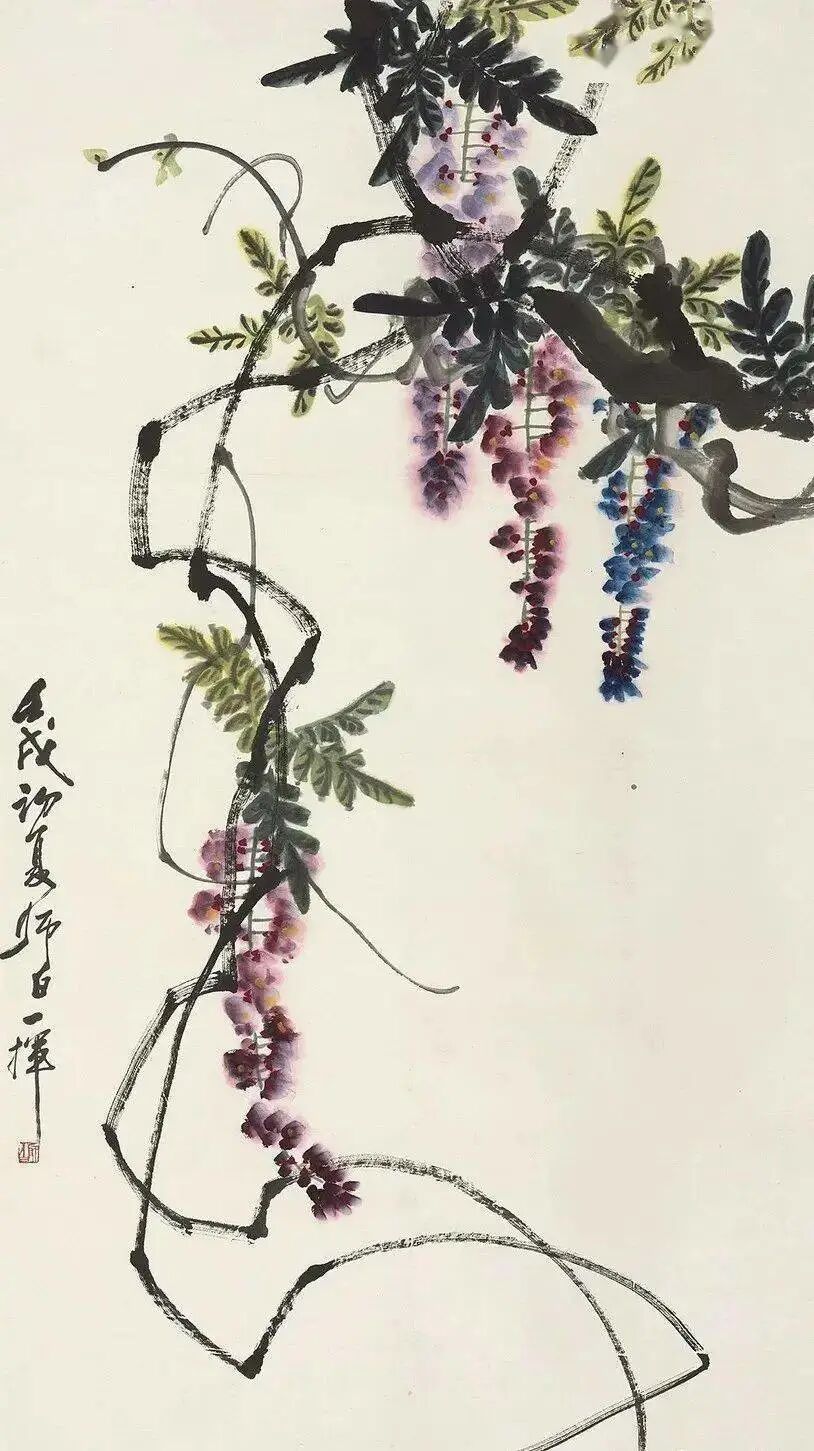 壬戌初夏师白一揮